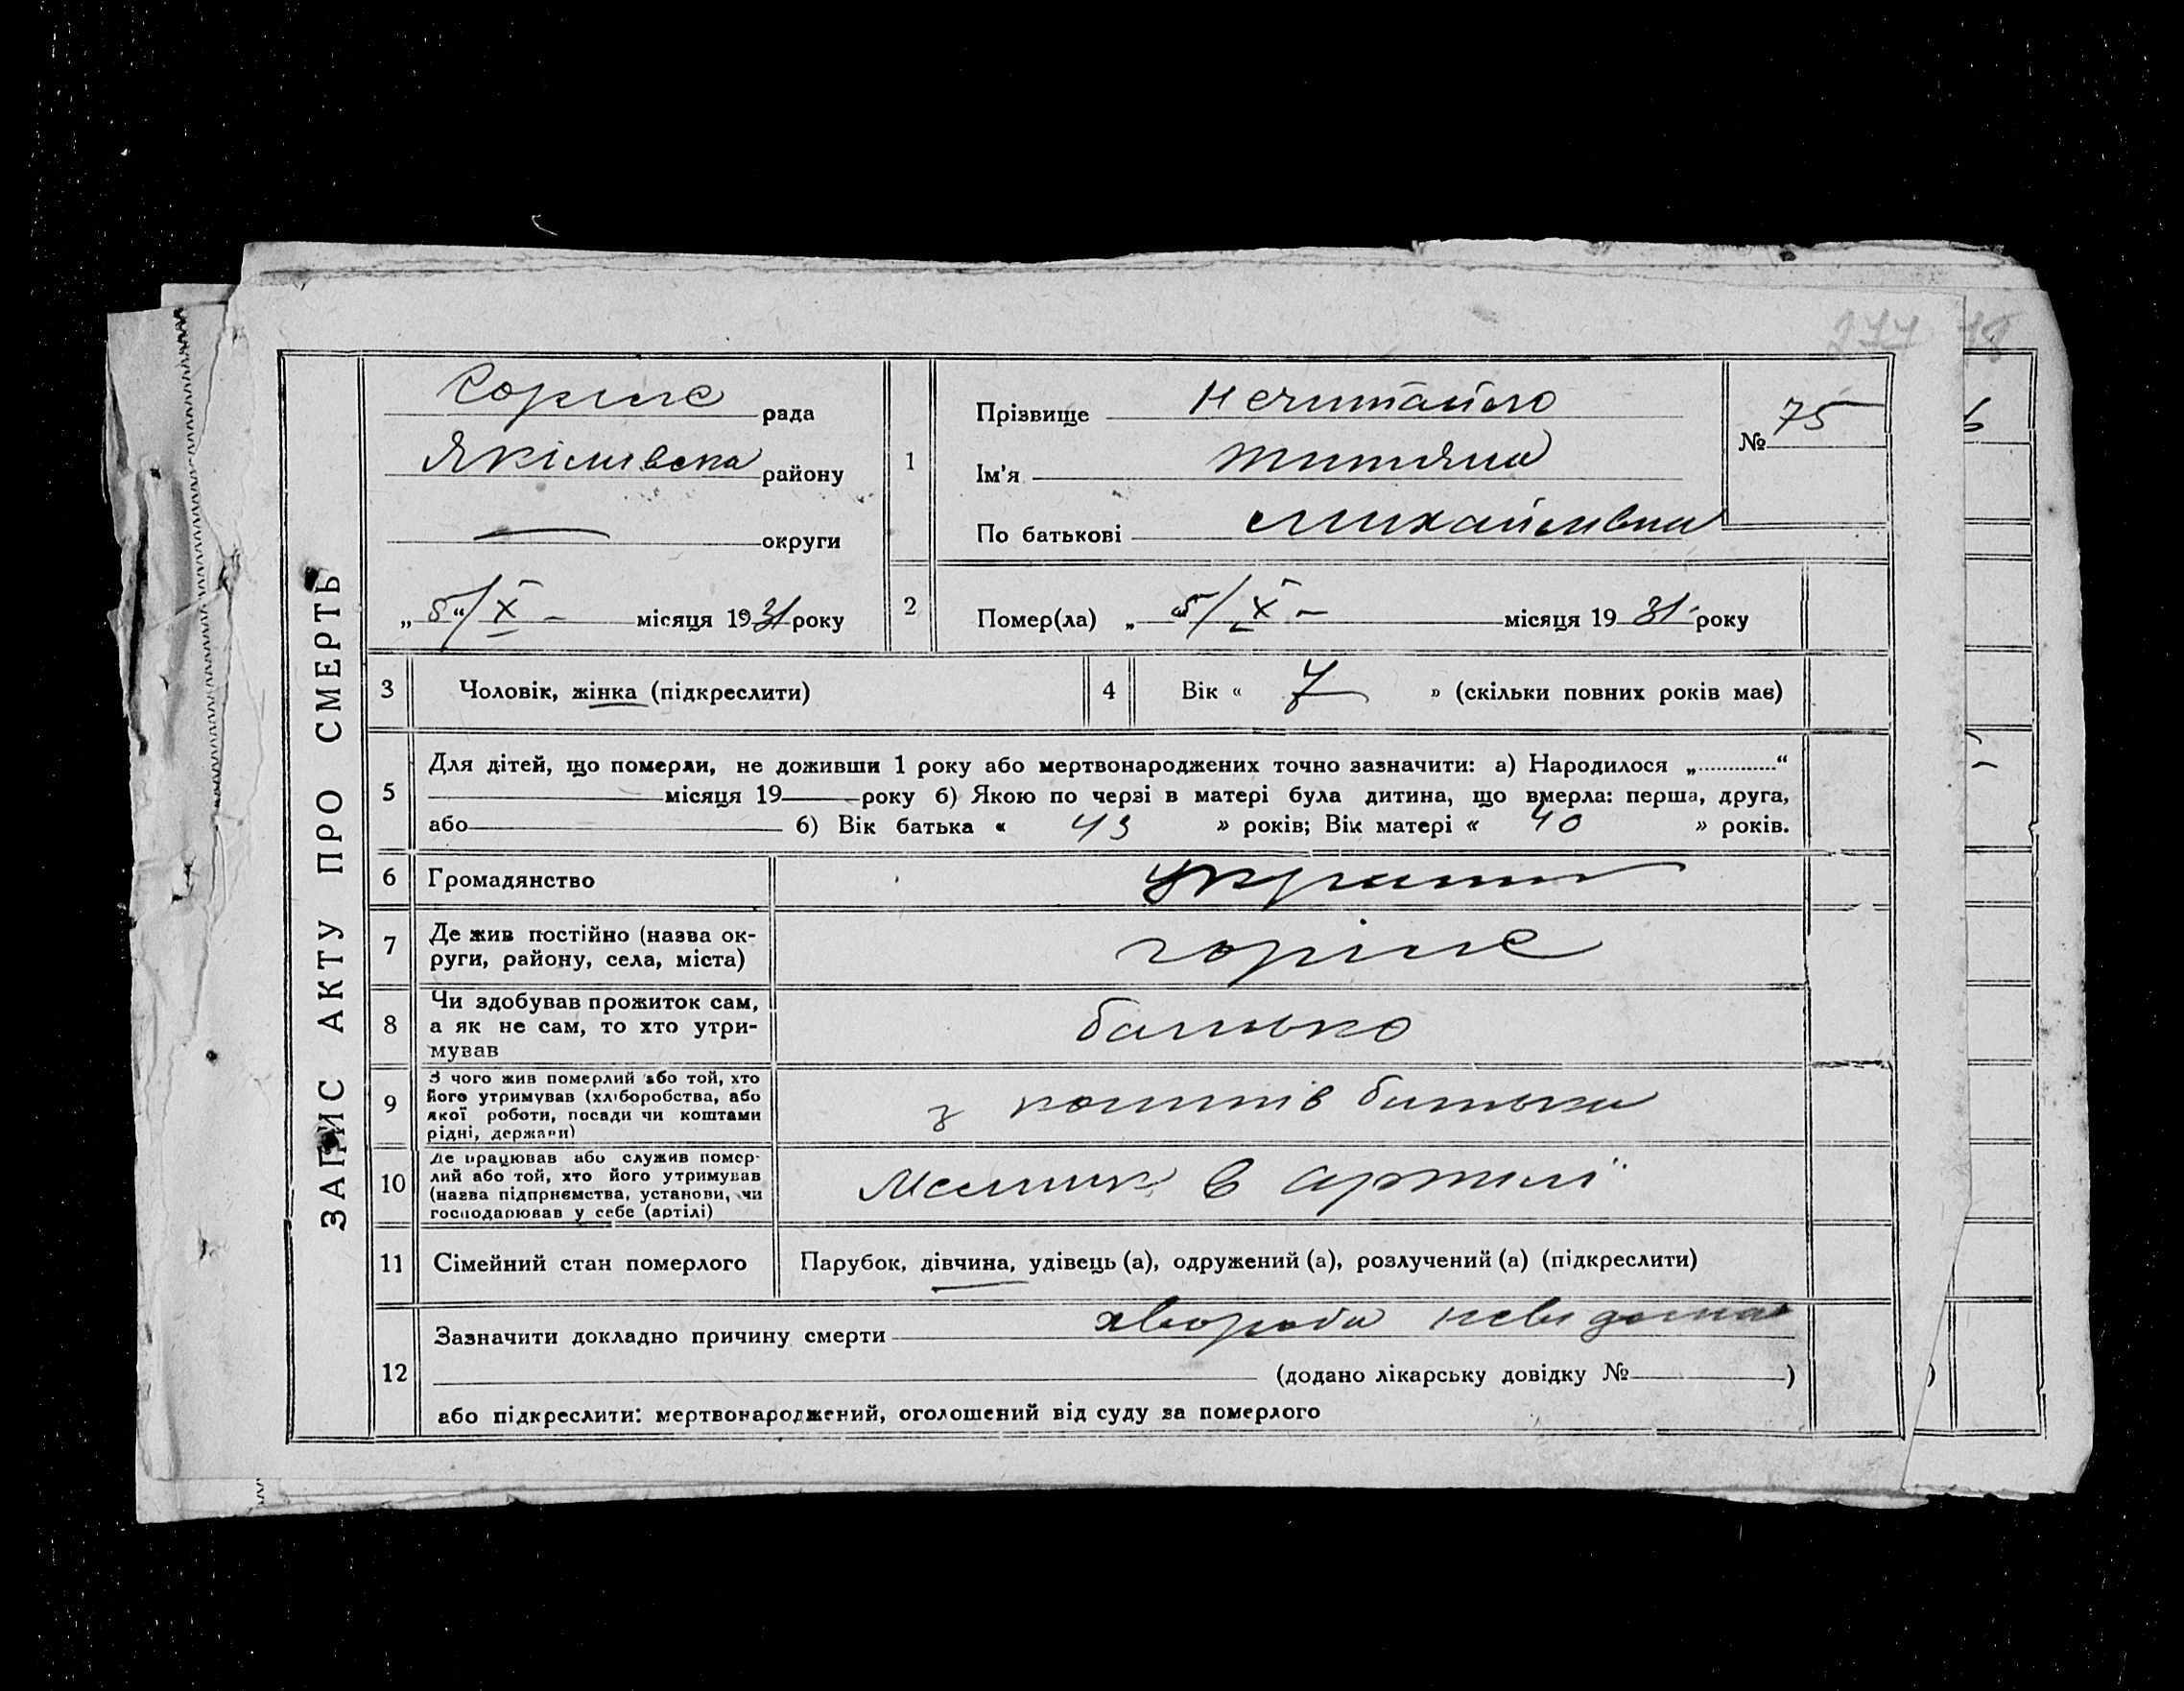 ЗАПИС АКТУ ПРО СМЕРТЬ
277
рада
району
округи
„ 5“/X – місяця 1931 року
1
Прізвище Нечитайло
Ім'я Титяна
По батькові Михайлівна
№ 75
2
Помер(ла) „ 5/X – місяця 1931 року
3
Чоловік, жінка (підкреслити)
4
Вік « 7 » (скільки повних років має)
5
Для дітей, що померли, не доживши 1 року або мертвонароджених точно зазначити: а) Народилося „ “
місяця 19 року б) Якою по черзі в матері була дитина, що вмерла: перша, друга,
або б) Вік батька « 43 » років; Вік матері « 40 » років.
6
Громадянство
7
Де жив постійно (назва ок-
руги, району, села, міста)
8
Чи здобував прожиток сам,
а як не сам, то хто утри-
мував
батько
9
З чого жив померлий або той, хто
його утримував (хліборобства, або
якої роботи, посади чи коштами
рідні, держави)
з коштів батька
10
Де працював або служив помер-
лий або той, хто його утримував
(назва підприємства, установи, чи
господарював у себе (артілі)
в артилі
11
Сімейний стан померлого
Парубок, дівчина, удівець (а), одружений (а), розлучений (а) (підкреслити)
12
Зазначити докладно причину смерти хвороба невідома
(додано лікарську довідку № )
або підкреслити: мертвонароджений, оголошений від суду за померлого